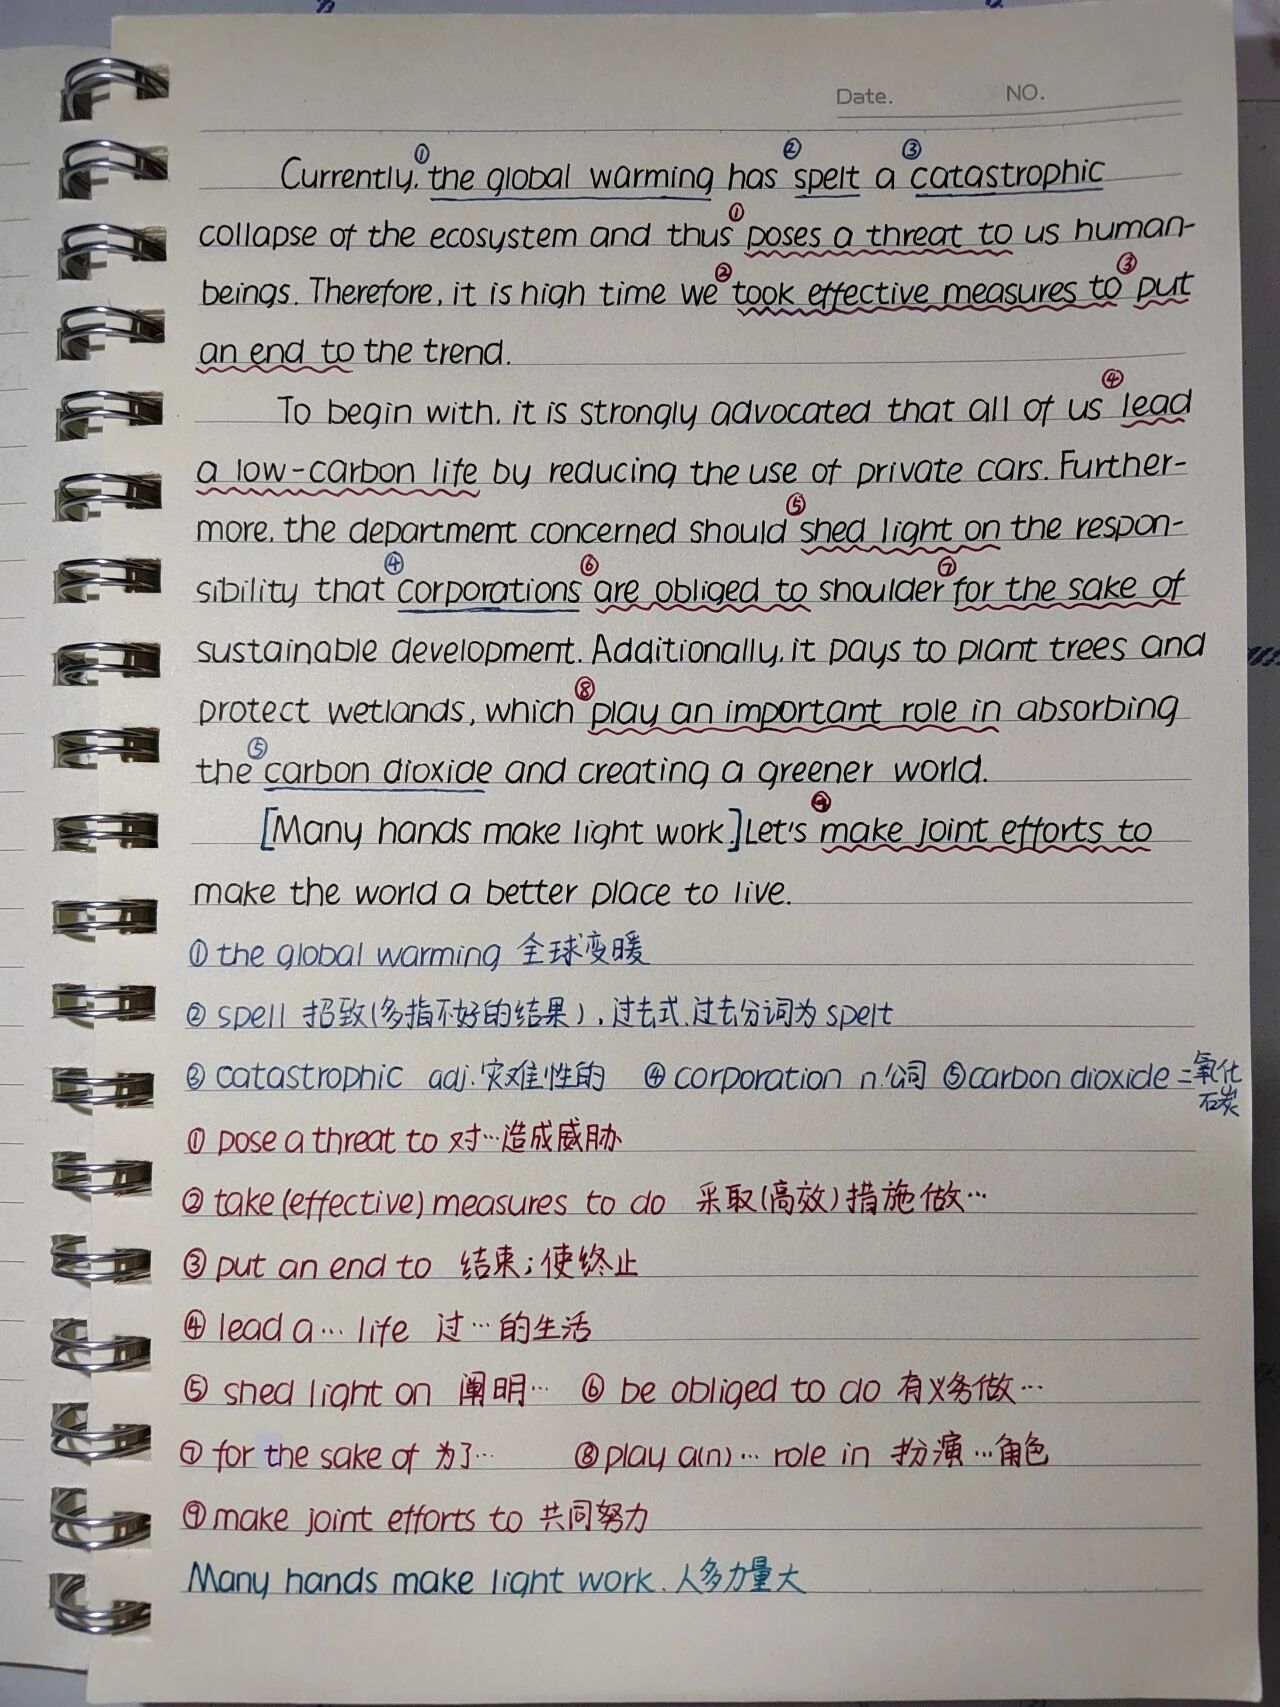 Date. NO.
Currently, ①the global warming has ②spelt a ③catastrophic
collapse of the ecosystem and thus ①poses a threat to us human-
beings. Therefore, it is high time we ②took effective measures to ③put
an end to the trend.
To begin with, it is strongly advocated that all of us ④lead
a low-carbon life by reducing the use of private cars. Further-
more, the department concerned should ⑤shed light on the respon-
sibility that ④corporations ⑥are obliged to shoulder ⑦for the sake of
sustainable development. Additionally, it pays to plant trees and
protect wetlands, which ⑧play an important role in absorbing
the ⑤carbon dioxide and creating a greener world.
[Many hands make light work.] Let's ⑨make joint efforts to
make the world a better place to live.
① the global warming 全球变暖
② spell 招致(多指不好的结果),过去式.过去分词为 spelt
③ catastrophic adj.灾难性的 ④ corporation n.公司 ⑤carbon dioxide 二氧化
石炭
① pose a threat to 对…造成威胁
② take (effective) measures to do 采取(高效)措施做…
③ put an end to 结束;使终止
④ lead a… life 过…的生活
⑤ shed light on 阐明… ⑥ be obliged to do 有义务做…
⑦ for the sake of 为了… ⑧ play a(n)… role in 扮演…角色
⑨ make joint efforts to 共同努力
Many hands make light work. 人多力量大